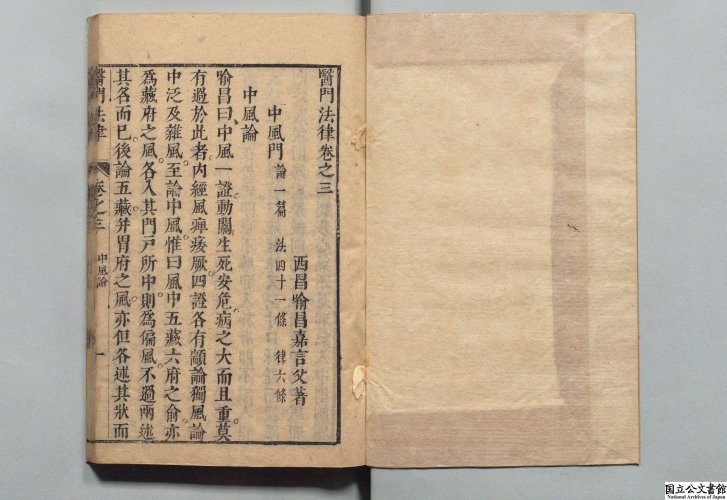 醫門法律卷之三
西昌喻昌嘉言父著
中風門 論一篇 法四十一條 律六條
中風論
喻昌曰中風一證動關生死安危病之大而且重莫
有過於此者內經風痺痿厥四證各有顓論獨風論
中泛及雜風至論中風惟曰風中五藏六府之俞亦
為藏府之風各入其門戶所中則為偏風不過兩述
其名而已後論五藏并胃府之風亦但各述其狀而
醫門法律 卷之三 中風論 一
国立公文書館
National Archives of Japan